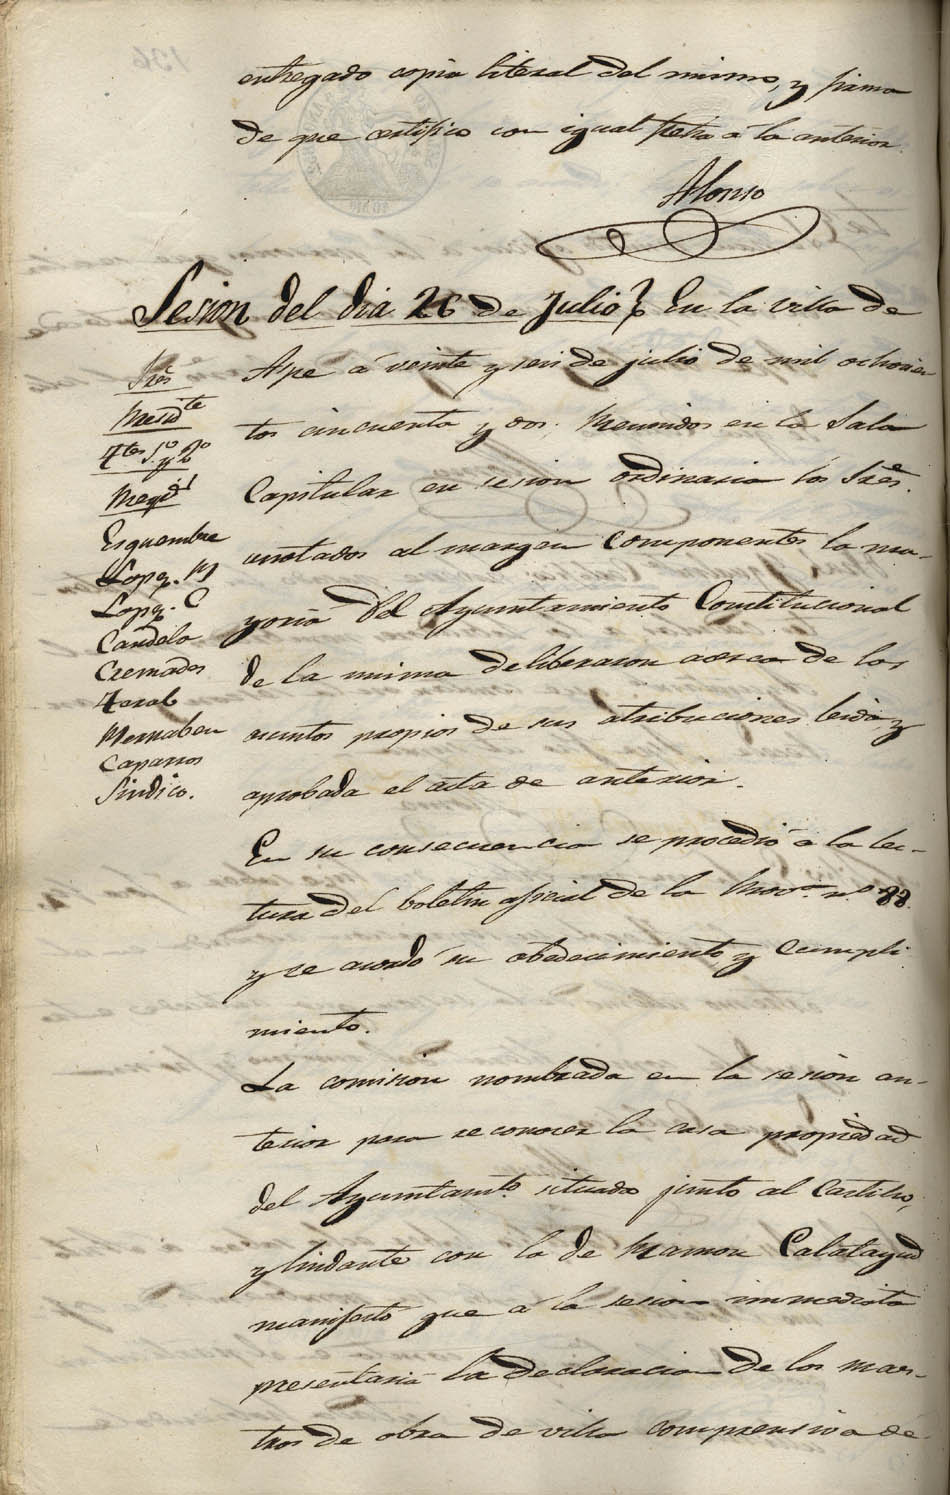 entregado copia literal del mismo, y firma
de que certifico con igual fecha á la anterior.
Alonso
Sesion del dia 26 de Julio En la villa de
Aspe á veinte y seis de julio de mil ochocien-
tos cincuenta y dos; Reunidos en la Sala
Capitular en sesion ordinaria los Sres.
anotados al margen componentes la ma-
yoria del Ayuntamiento Constitucional
de la misma deliberaron acerca de los
asuntos propios de sus atribuciones leida y
aprobada el acta de anterior.
Sres
Presidte
Ttes 1º y 2º
Regid
Esquembre
Lopz. M
Lopz. C
Candela
Cremades
Terol
Bernabeu
Caparros
Sindico.
En su consecuencia se procedió á la lec-
tura del boletin oficial de la Prova. n.º 88.
y se acordó su obedecimiento y cumpli
miento.
La comision nombrada en la sesion an-
terior para reconocer la casa propiedad
del Ayuntamto. situada junto al Castillo,
y lindante con la de Ramon Calatayud
manifestó que á la sesion immediata
presentaria la declaracion de los maes-
tros de obra de villa comprensiva de